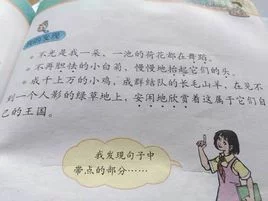 我的发现
。不光是我一朵，一池的荷花都在舞蹈。
。不再胆怯的小白菊，慢慢地抬起它们的头。
。成千上万的小鸡，成群结队的长毛山羊，在见不
到一个人影的绿草地上，安闲地欣赏着这属于它们自
己的王国。
我发现句子中
带点的部分……